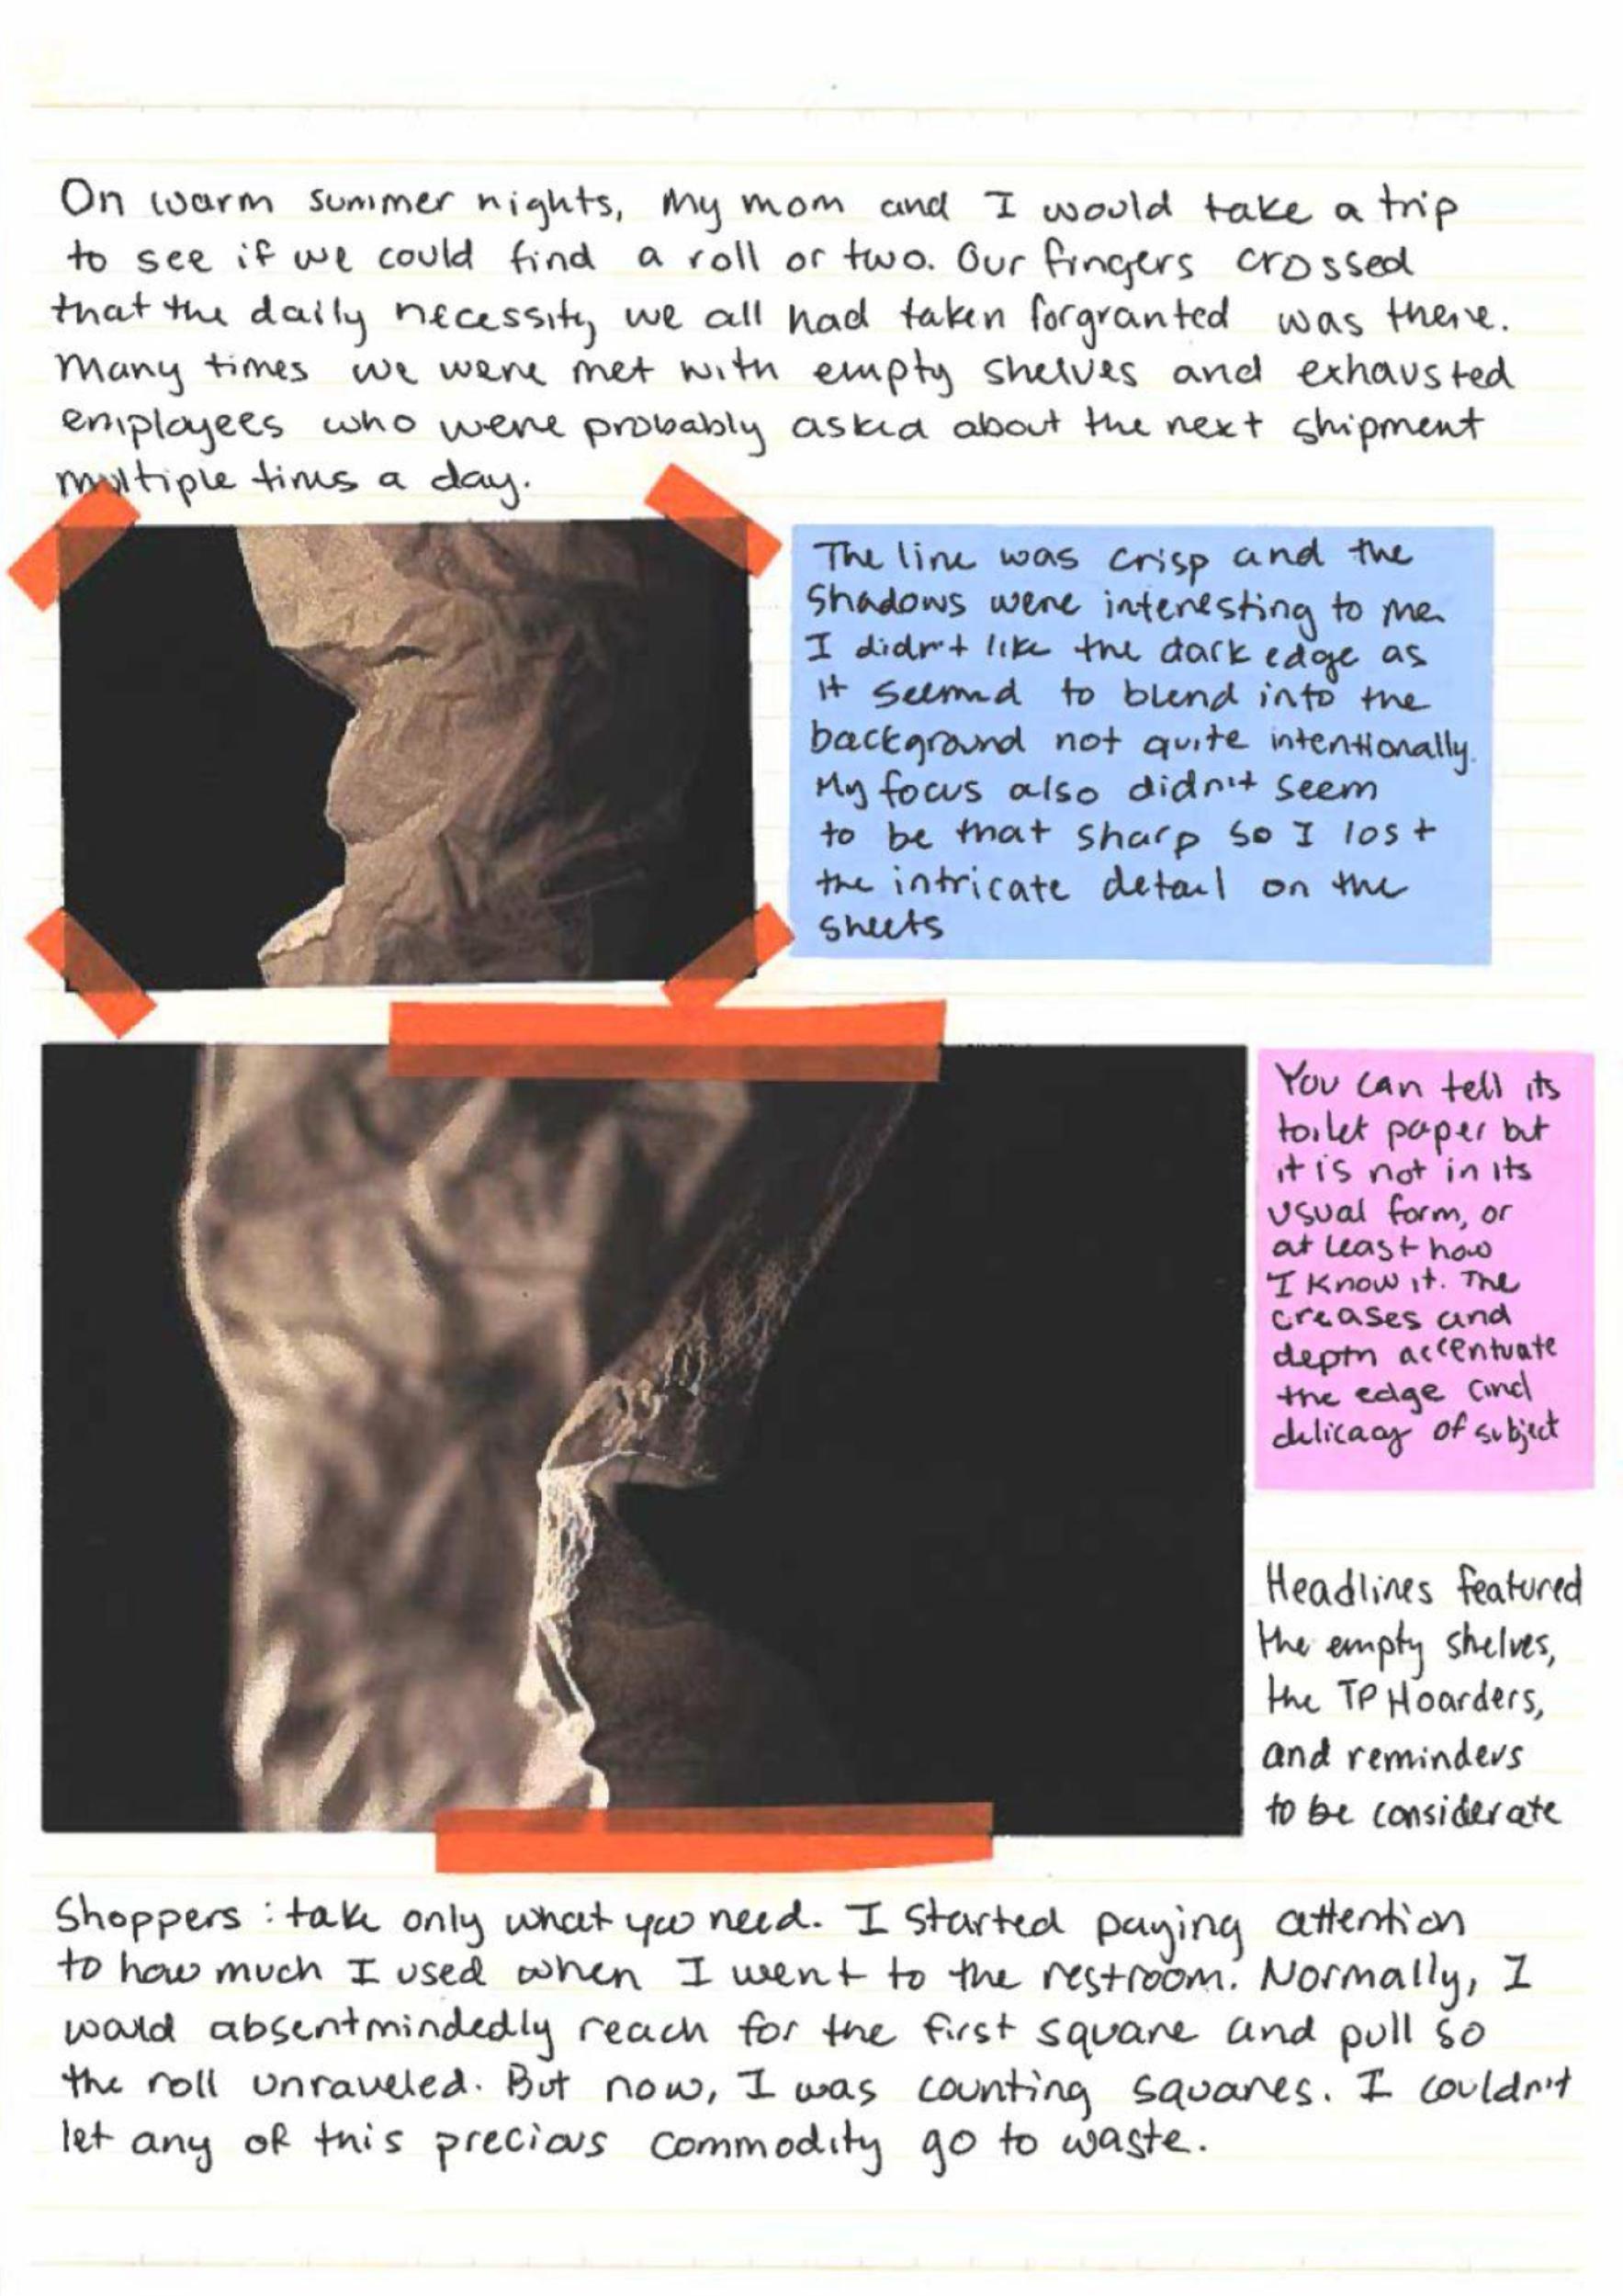 On warm summer nights, My mom and I would take a trip
to see if we could find a roll or two. Our fingers crossed
that the daily necessity we all had taken forgranted was there.
Many times we were met with empty shelves and exhausted
employees who were probably asked about the next shipment
multiple times a day.
The line was crisp and the
shadows were interesting to me.
I didn't like the dark edge as
it seemed to blend into the
background not quite intentionally.
My focus also didn't seem
to be that sharp so I lost
the intricate detail on the
sheets
You can tell its
toilet paper but
it is not in its
usual form, or
at least how
I know it. The
creases and
depth accentuate
the edge and
delicacy of subject
Headlines featured
the empty shelves,
the TP Hoarders,
and reminders
to be considerate
Shoppers: take only what you need. I started paying attention
to how much I used when I went to the restroom. Normally, I
would absentmindedly reach for the first square and pull so
the roll unraveled. But now, I was counting squares. I couldn't
let any of this precious commodity go to waste.